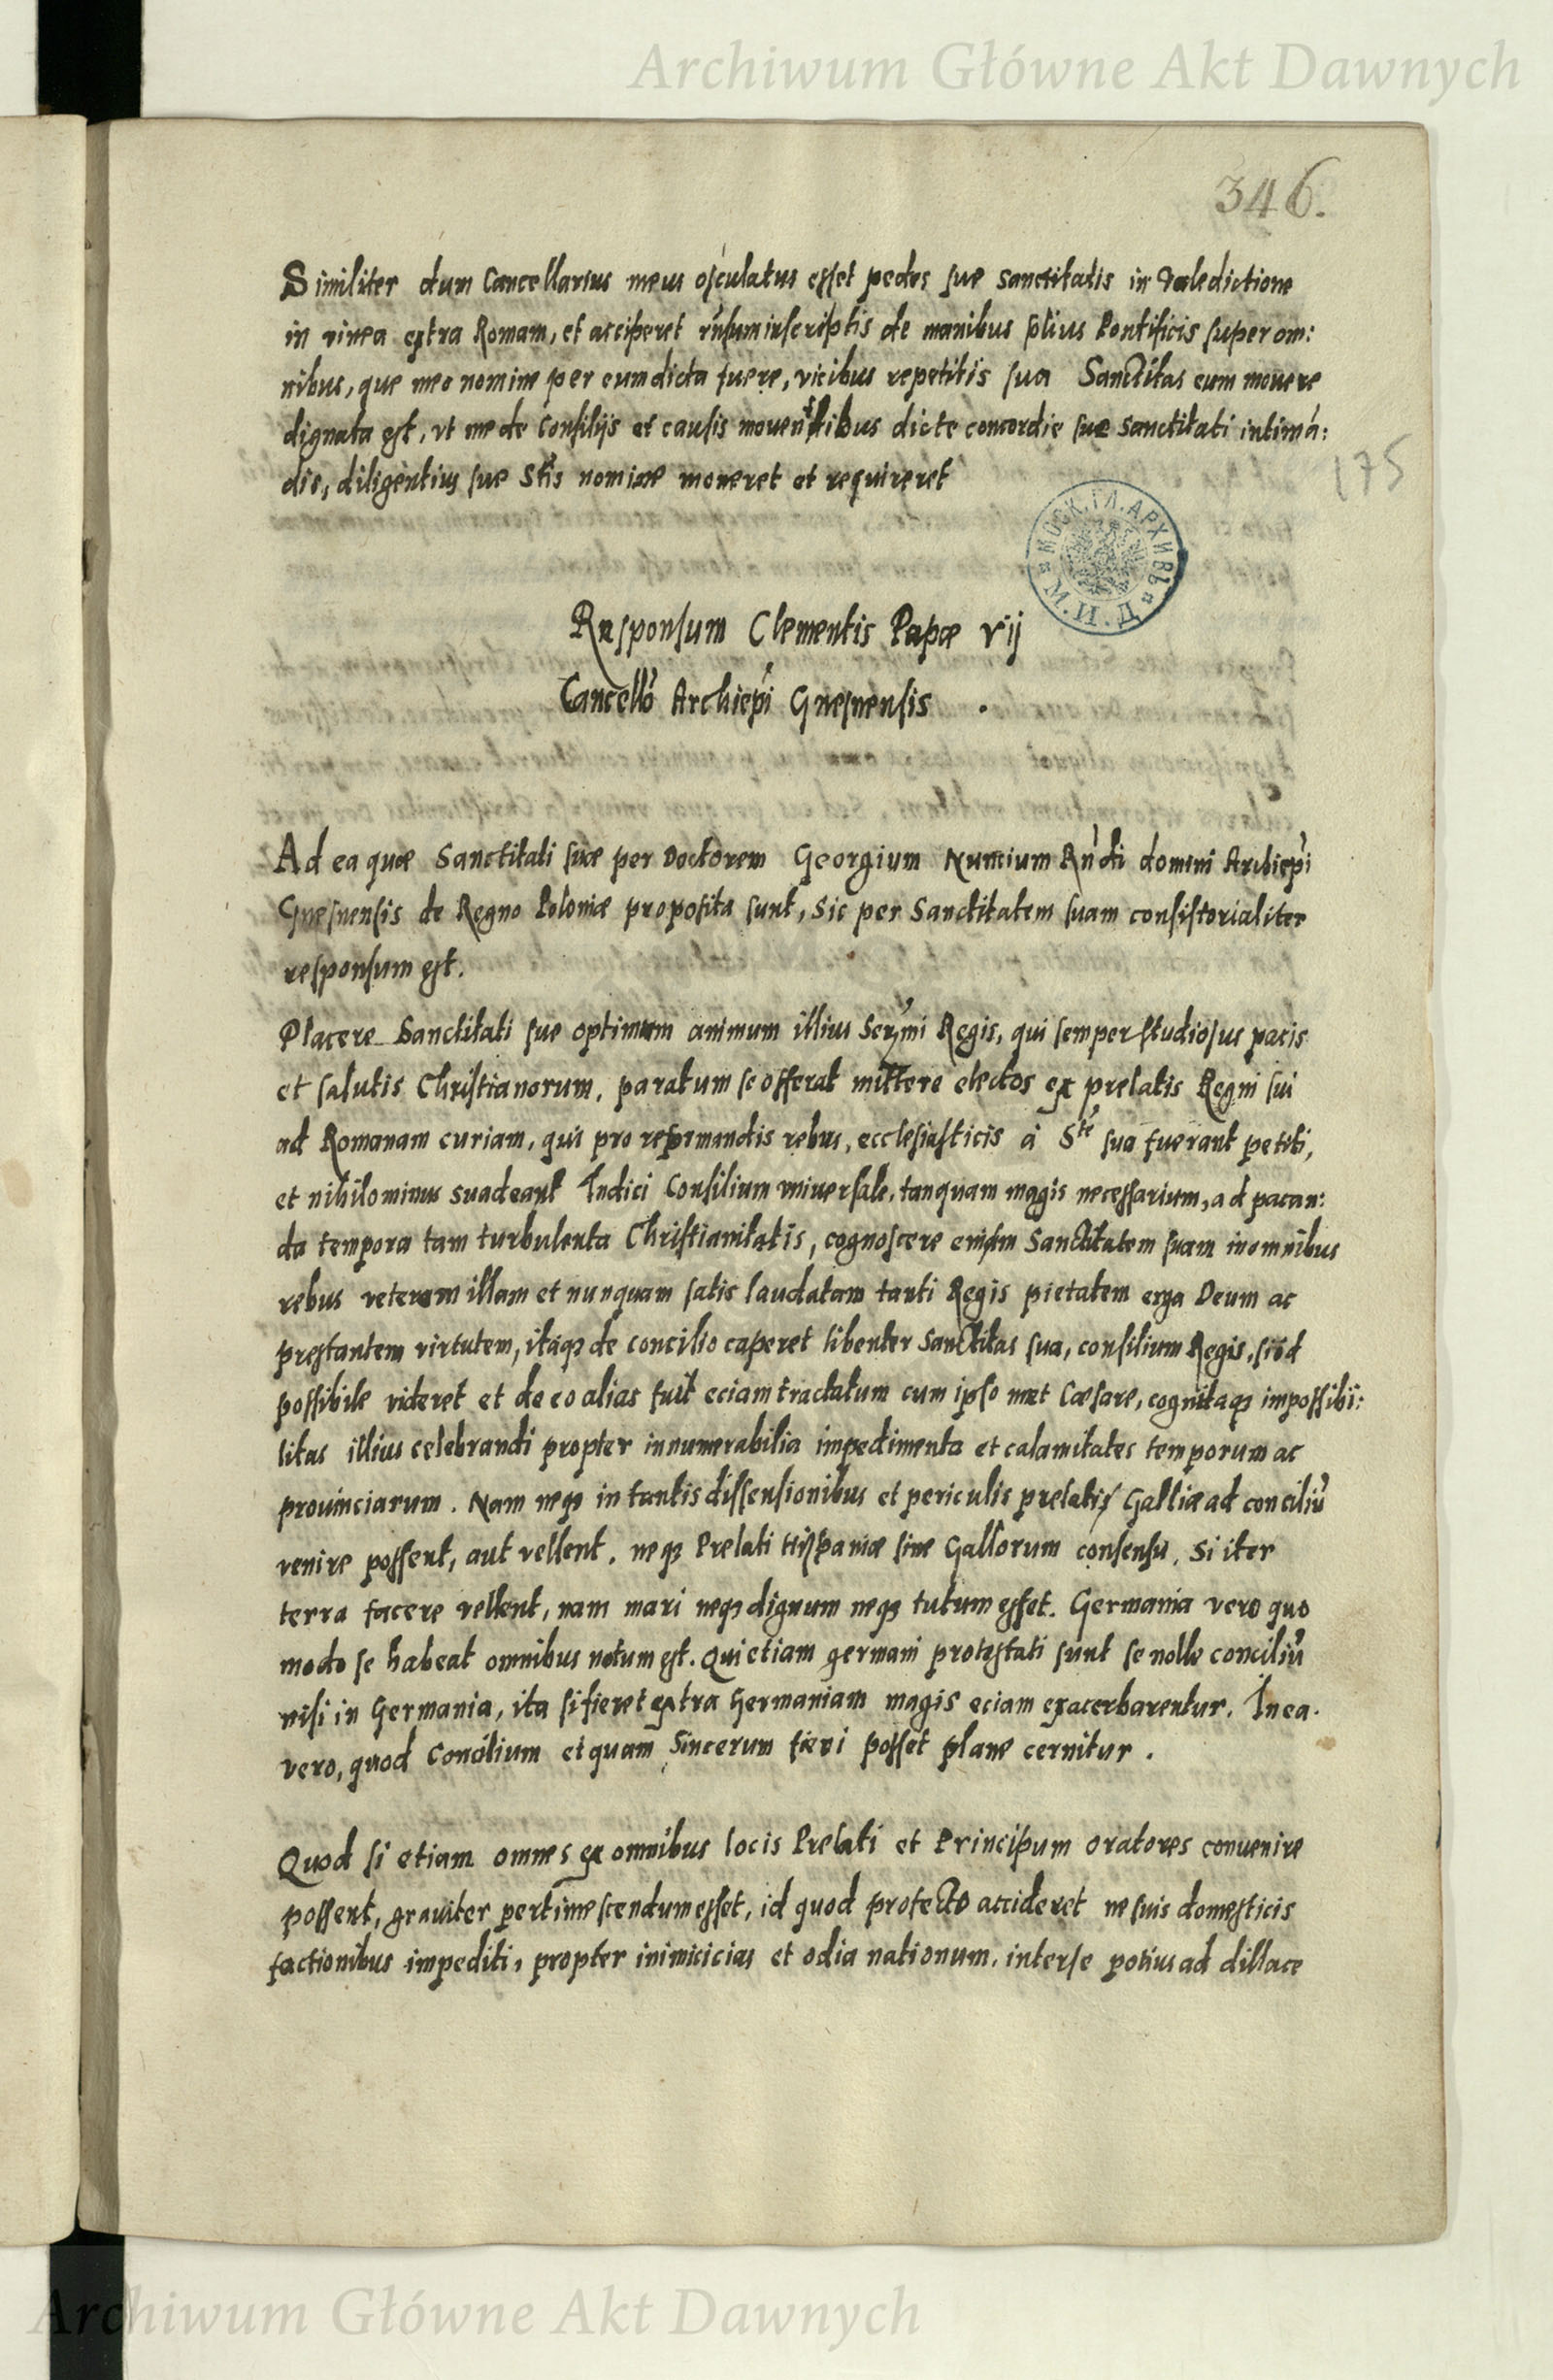 Archiwum Główne Akt Dawnych
346.
Similiter dum Cancellarius meus osculatus esset pedes sue sanctitatis in Valedictione
in vinea extra Romam, et acciperet rñsum in scriptis de manibus ip̃ius Pontificis super om:
nibus, que meo nomine per eum dicta fuere, vicibus repetitis sua Sanctitas eum monere
dignata est, vt me de Consilijs et causis moventibus dicte concordie sue sanctitati intimã:
dis, diligentius sue Stis nomine moneret et requireret
175
МОСК. ГЛ. АРХИВЪ М. И. Д.
Responsum Clementis Papæ vij
Cancellõ Archiep̃i Gnesnensis .
Ad ea quæ Sanctitati suæ per Doctorem Georgium Nuncium Rñdi domini Archiep̃i
Gnesnensis de Regno Poloniæ proposita sunt, sic per Sanctitatem suam consistorialiter
responsum est.
Placere Sanctitati sue optimum animum illius Serm̃i Regis, qui semper studiosus pacis
et salutis Christianorum, paratum se offerat mittere electos ex prelatis Regni sui
ad Romanam curiam, qui pro reformandis rebus, ecclesiasticis à Ste sua fuerant petiti,
et nihilominus suadeant Indici Consilium vniuersale, tanquam magis necessarium, ad pacan:
da tempora tam turbulenta Christianitatis, cognoscere Sanctitatem suam in omnibus
rebus veterem illam et nunquam satis laudatam tanti Regis pietatem erga Deum ac
prestantem virtutem, itaqꝫ de concilio caperet libenter Sanctitas sua, consilium Regis, si id
possibile videret et de eo alias fuit eciam tractatum cum ipso met Cæsare, cognitaqꝫ impossibi:
litas illius celebrandi propter innumerabilia impedimenta et calamitates temporum ac
prouinciarum. Nam neqꝫ in tantis dissensionibus et periculis prelati Galliæ ad conciliũ
venire possent, aut vellent, neqꝫ Prelati Hispaniæ sine Gallorum consensu, si iter
terra facere vellent, nam mari neqꝫ dignum neqꝫ tutum esset. Germania vero quo
modo se habeat omnibus notum est. Qui etiam germani protestati sunt se nolle conciliũ
nisi in Germania, ita si fieret extra Germaniam magis eciam exacerbarentur. In ea.
vero, quod Concilium et quam sincerum fieri posset plane cernitur.
Quod si etiam omnes ex omnibus locis Prelati et Principum oratores conuenire
possent, grauiter pertimescendum esset, id quod profecto accideret ne suis domesticis
factionibus impediti, propter inimicicias et odia nationum, inter se potius ad dillace
Archiwum Główne Akt Dawnych